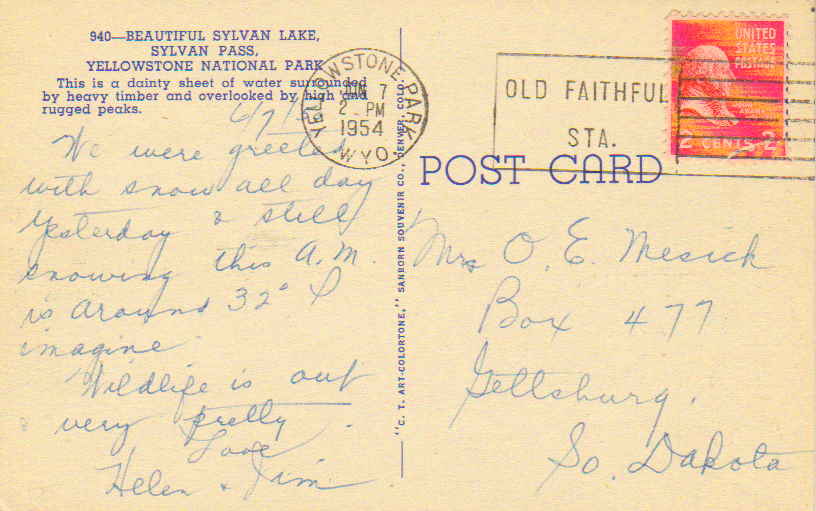 940—BEAUTIFUL SYLVAN LAKE,
SYLVAN PASS,
YELLOWSTONE NATIONAL PARK
This is a dainty sheet of water surrounded
by heavy timber and overlooked by high and
rugged peaks.
6/7/
We were greeted
with snow all day
yesterday & still
snowing this A.M.
is around 32° I
imagine.
Wildlife is out
very pretty.
Love
Helen & Jim
"C. T. ART-COLORTONE," SANBORN SOUVENIR CO., DENVER, COLO.
YELLOWSTONE PARK,
JUN 7
2 PM
1954
WYO.
OLD FAITHFUL
STA.
UNITED
STATES
POSTAGE
2 CENTS 2
POST CARD
Mrs O. E. Mesick
Box 477
Gettsburg,
So. Dakota